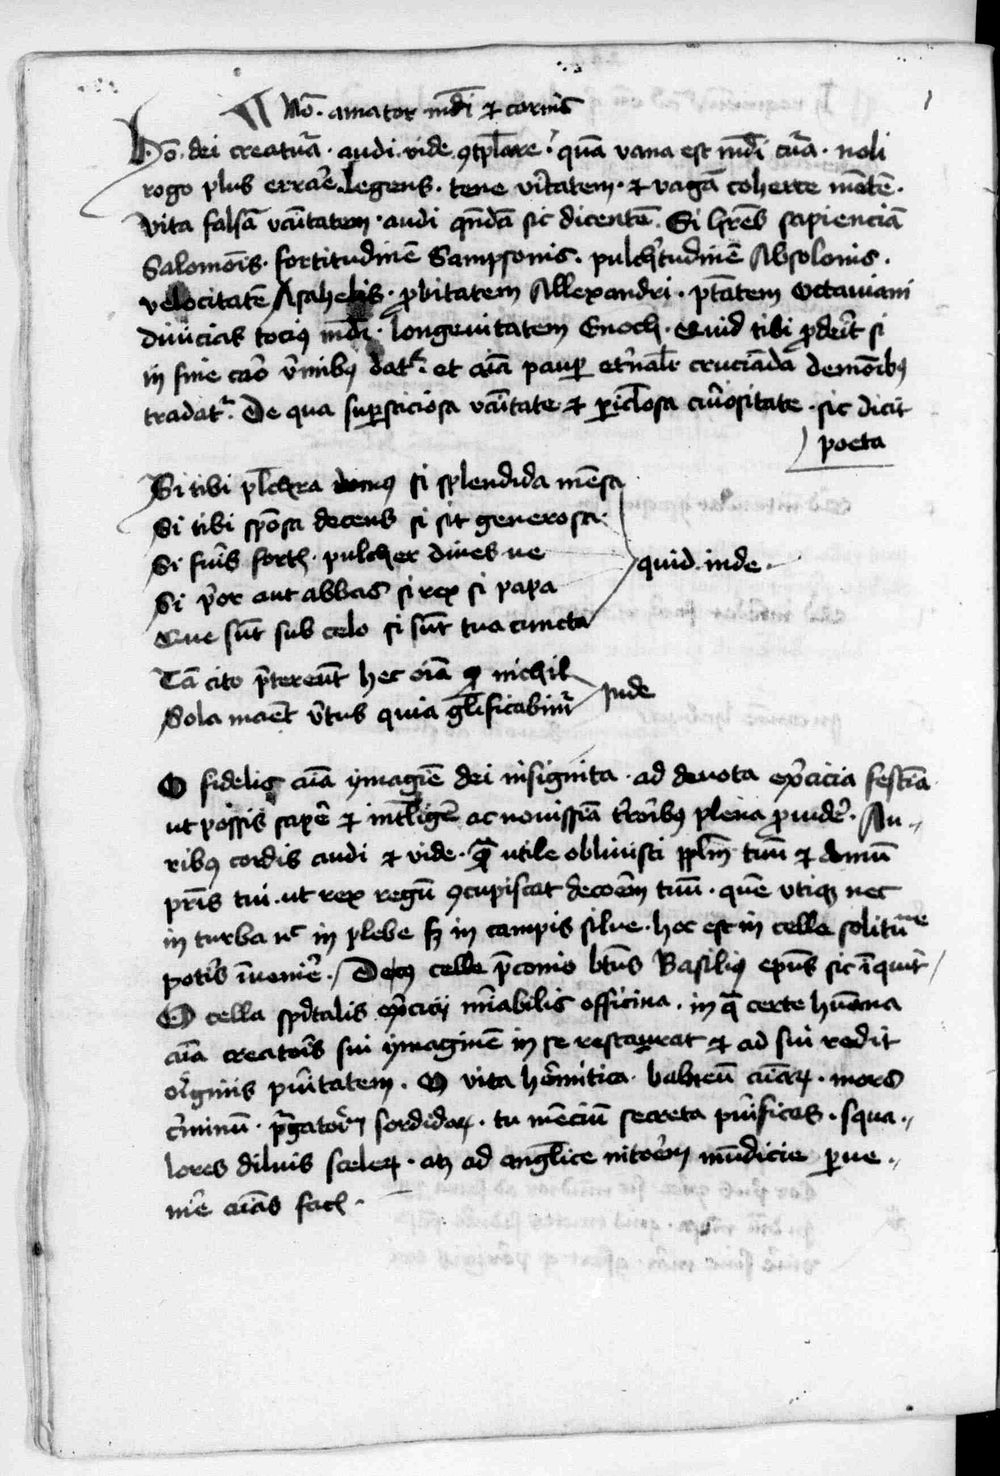 Nō. amator mūdi et carnis
Hō. dei creatura. audi. vide 9tēplare. quā vana est mūdi cūra. noli
rogo plus errare. legens. tene vītatem. et vagā coherce mētē.
vita falsā vanitatem. audi quēdā sic dicentē. Si hrēs sapienciā
Salomōis. fortitudinē Sampsonis. pulchtudinē Absolonis.
velocitatē Asahelis. pbitatem Allexandri. ptātem Octauiani
diuicias tocius mūdi. longeuitatem Enoch. Quid tibi pderit si
in fine caro vmibus datr. et aīa paup etnalr cruciāda demōibus
tradatr. De qua supsticiosa vanitate et piclosa curiositate. sic dicit
poeta
Si tibi plchra domus si splendida mēsa
Si tibi spōsa decens si sit generosa.
Si fuis fortis. pulcher diues ue
Si pror aut abbas si rex si papa
Que sūt sub celo si sūt tua cuncta
quid inde.
Tā cito ptereūt hec oīa quod nichil
Sola manēt vtus quia glīficabimr
Inde
O fidelis aīa ymagīe dei insignita. ad deuota exercicia festīa
ut possis sapere et intelligēe ac nouissīa terroribus plena puidēe. Au
ribus cordis audi et vide. quā utile obliuisci pplm tuū et domū
pris tui. ut rex regū 9cupiscat decorēm tuū. quē utique nec
in turba nec in plebe sed in campis silue. hoc est in cella solitudīe
potis inuenire. De cuius celle pconio btūs Basilius epūs sic īquit
O cella spūtalis exercicij mirabilis officina. in qua certe humana
aīa creatoris sui ymaginē in se restaurat et ad sui redit
originis puritatem. O vita heremitica. balneū aīarum. mors
criminū. purgatorium sordidorum. tu mēcium secreta purificas. squa
lores diluis scelerum. atque ad anglice nitorem mūdicie perue
nire aīas facis.